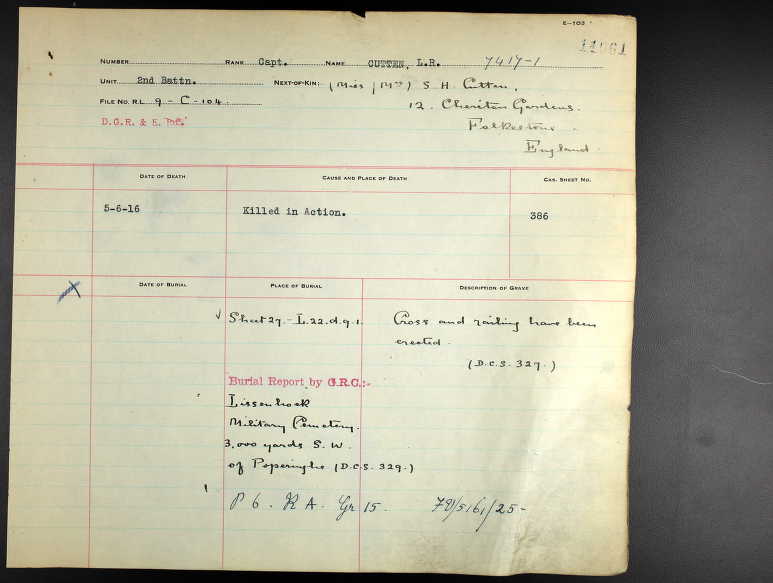 E-103
NUMBER RANK Capt. NAME CUTTEN, L.R. 7417-1
UNIT 2nd Battn. NEXT-OF-KIN: (Miss S. H. Cutten,
FILE NO. R.L. 9 - C - 104. 12. Cheriton Gardens.
D.G.R. & E. Folkestone.
England.
DATE OF DEATH CAUSE AND PLACE OF DEATH CAS. SHEET NO.
5-6-16 Killed in Action. 386
DATE OF BURIAL PLACE OF BURIAL DESCRIPTION OF GRAVE
Sheet 27.- L.22.d.9.1. Cross and railing have been
erected.
(D.C.S. 327.)
Burial Report by G.R.C.:-
Lissenhoek
Military Cemetery.
3,000 yards S. W.
of Poperinghe (D.C.S. 329.)
P 6. R A. Gr 15.